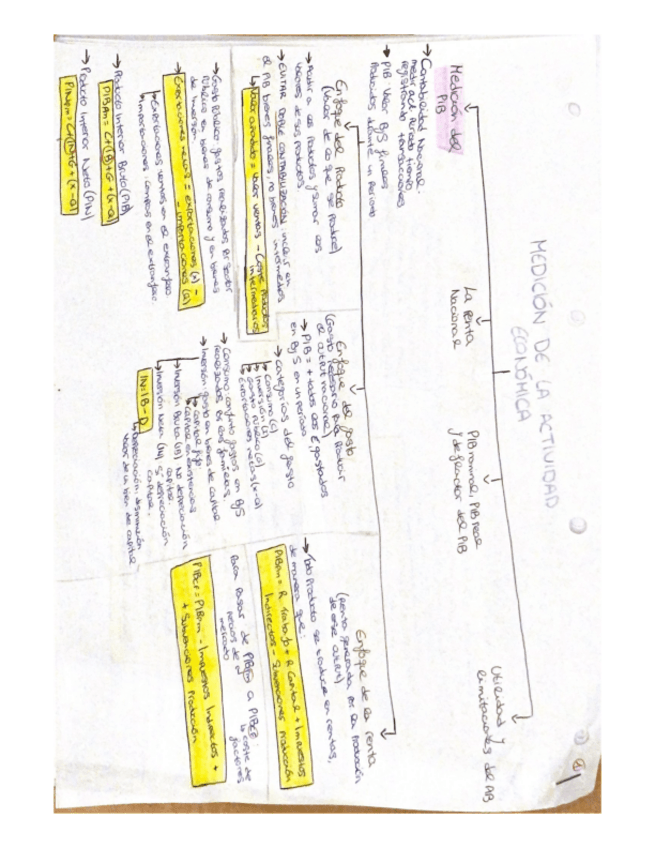 MEDICIÓN DE LA ACTIVIDAD
ECONÓMICA
Medición del
PIB
La Renta
Nacional
PIB nominal, PIB real
y deflactor del PIB
Utilidad y
limitaciones del
→ Contabilidad Nacional:
registrando transacciones
→ PIB valor B y S finales
producidos durante un periodo
Enfoque del Producto
(Valor de lo que se produce)
→ Acudir a los productos y sumar los
valores de sus productos
→ EVITAR DOBLE CONTABILIZACIÓN incluir en
el PIB bienes finales, no bienes intermedios
↳ Valor añadido = valor ventas - Coste Productos
intermedios
Enfoque del gasto
(Gasto necesario para
→ PIB = + todos los € gastados
en B y S en un periodo
→ Categorías del gasto
→ Consumo (C)
→ Inversión (I)
→ gasto público (G)
→ exportaciones netas (X-Q)
→ Consumo: conjunto gastos en B y S
realizados por las familias
→ Inversión: gasto en bienes de capital
→ capital fijo
→ capital en existencias
→ Inversión Bruta (IB) NO depreciación
capital
→ Inversión Neta (IN) SÍ depreciación
capital
IN = IB - D
↳ depreciación, disminución
valor de un bien de capital
→ Gasto Público: gastos realizados por sector
público en bienes de consumo y en bienes
de inversión
→ Exportaciones netas = exportaciones (X) -
- importaciones (Q)
→ exportaciones: ventas en el extranjero
→ importaciones: compras en el extranjero
→ Producto Interior Bruto (PIB)
PIBpm = C+(IB)+G+(X-Q)
→ Producto Interior Neto (PIN)
PINpm = C+(IN)+G+(X-Q)
Enfoque de la renta
(renta generada por la producción
→ Todo producto se traduce en rentas,
de manera que:
PIBpm = R Trabajo + R Capital + Impuestos
Indirectos - Subvenciones Producción
Para pasar de PIBpm a PIBcf:
precios de mercado
coste de factores
PIBcf = PIBpm - Impuestos Indirectos +
+ Subvenciones Producción